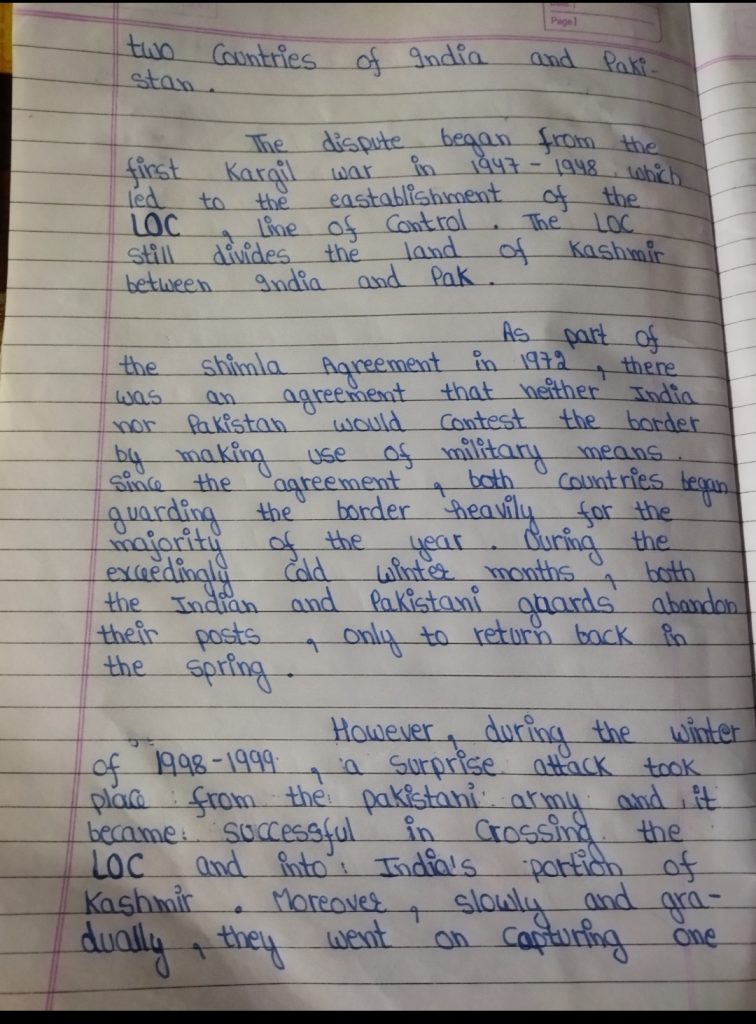 Page
two Countries of India and Paki-
stan.
The dispute began from the
first Kargil war in 1947 - 1948 which
led to the eastablishment of the
LOC, Line of Control. The LOC
still divides the land of Kashmir
between India and Pak.
As part of
the shimla Agreement in 1972, there
was an agreement that neither India
nor Pakistan would contest the border
by making use of military means.
Since the agreement, both countries began
guarding the border heavily for the
majority of the year. During the
exceedingly cold winter months, both
the Indian and Pakistani guards abandon
their posts, only to return back in
the spring.
However, during the winter
of 1998-1999, a surprise attack took
place from the pakistani army and it
became successful in Crossing the
LOC and into India's portion of
Kashmir. Moreover, slowly and gra-
dually, they went on capturing one